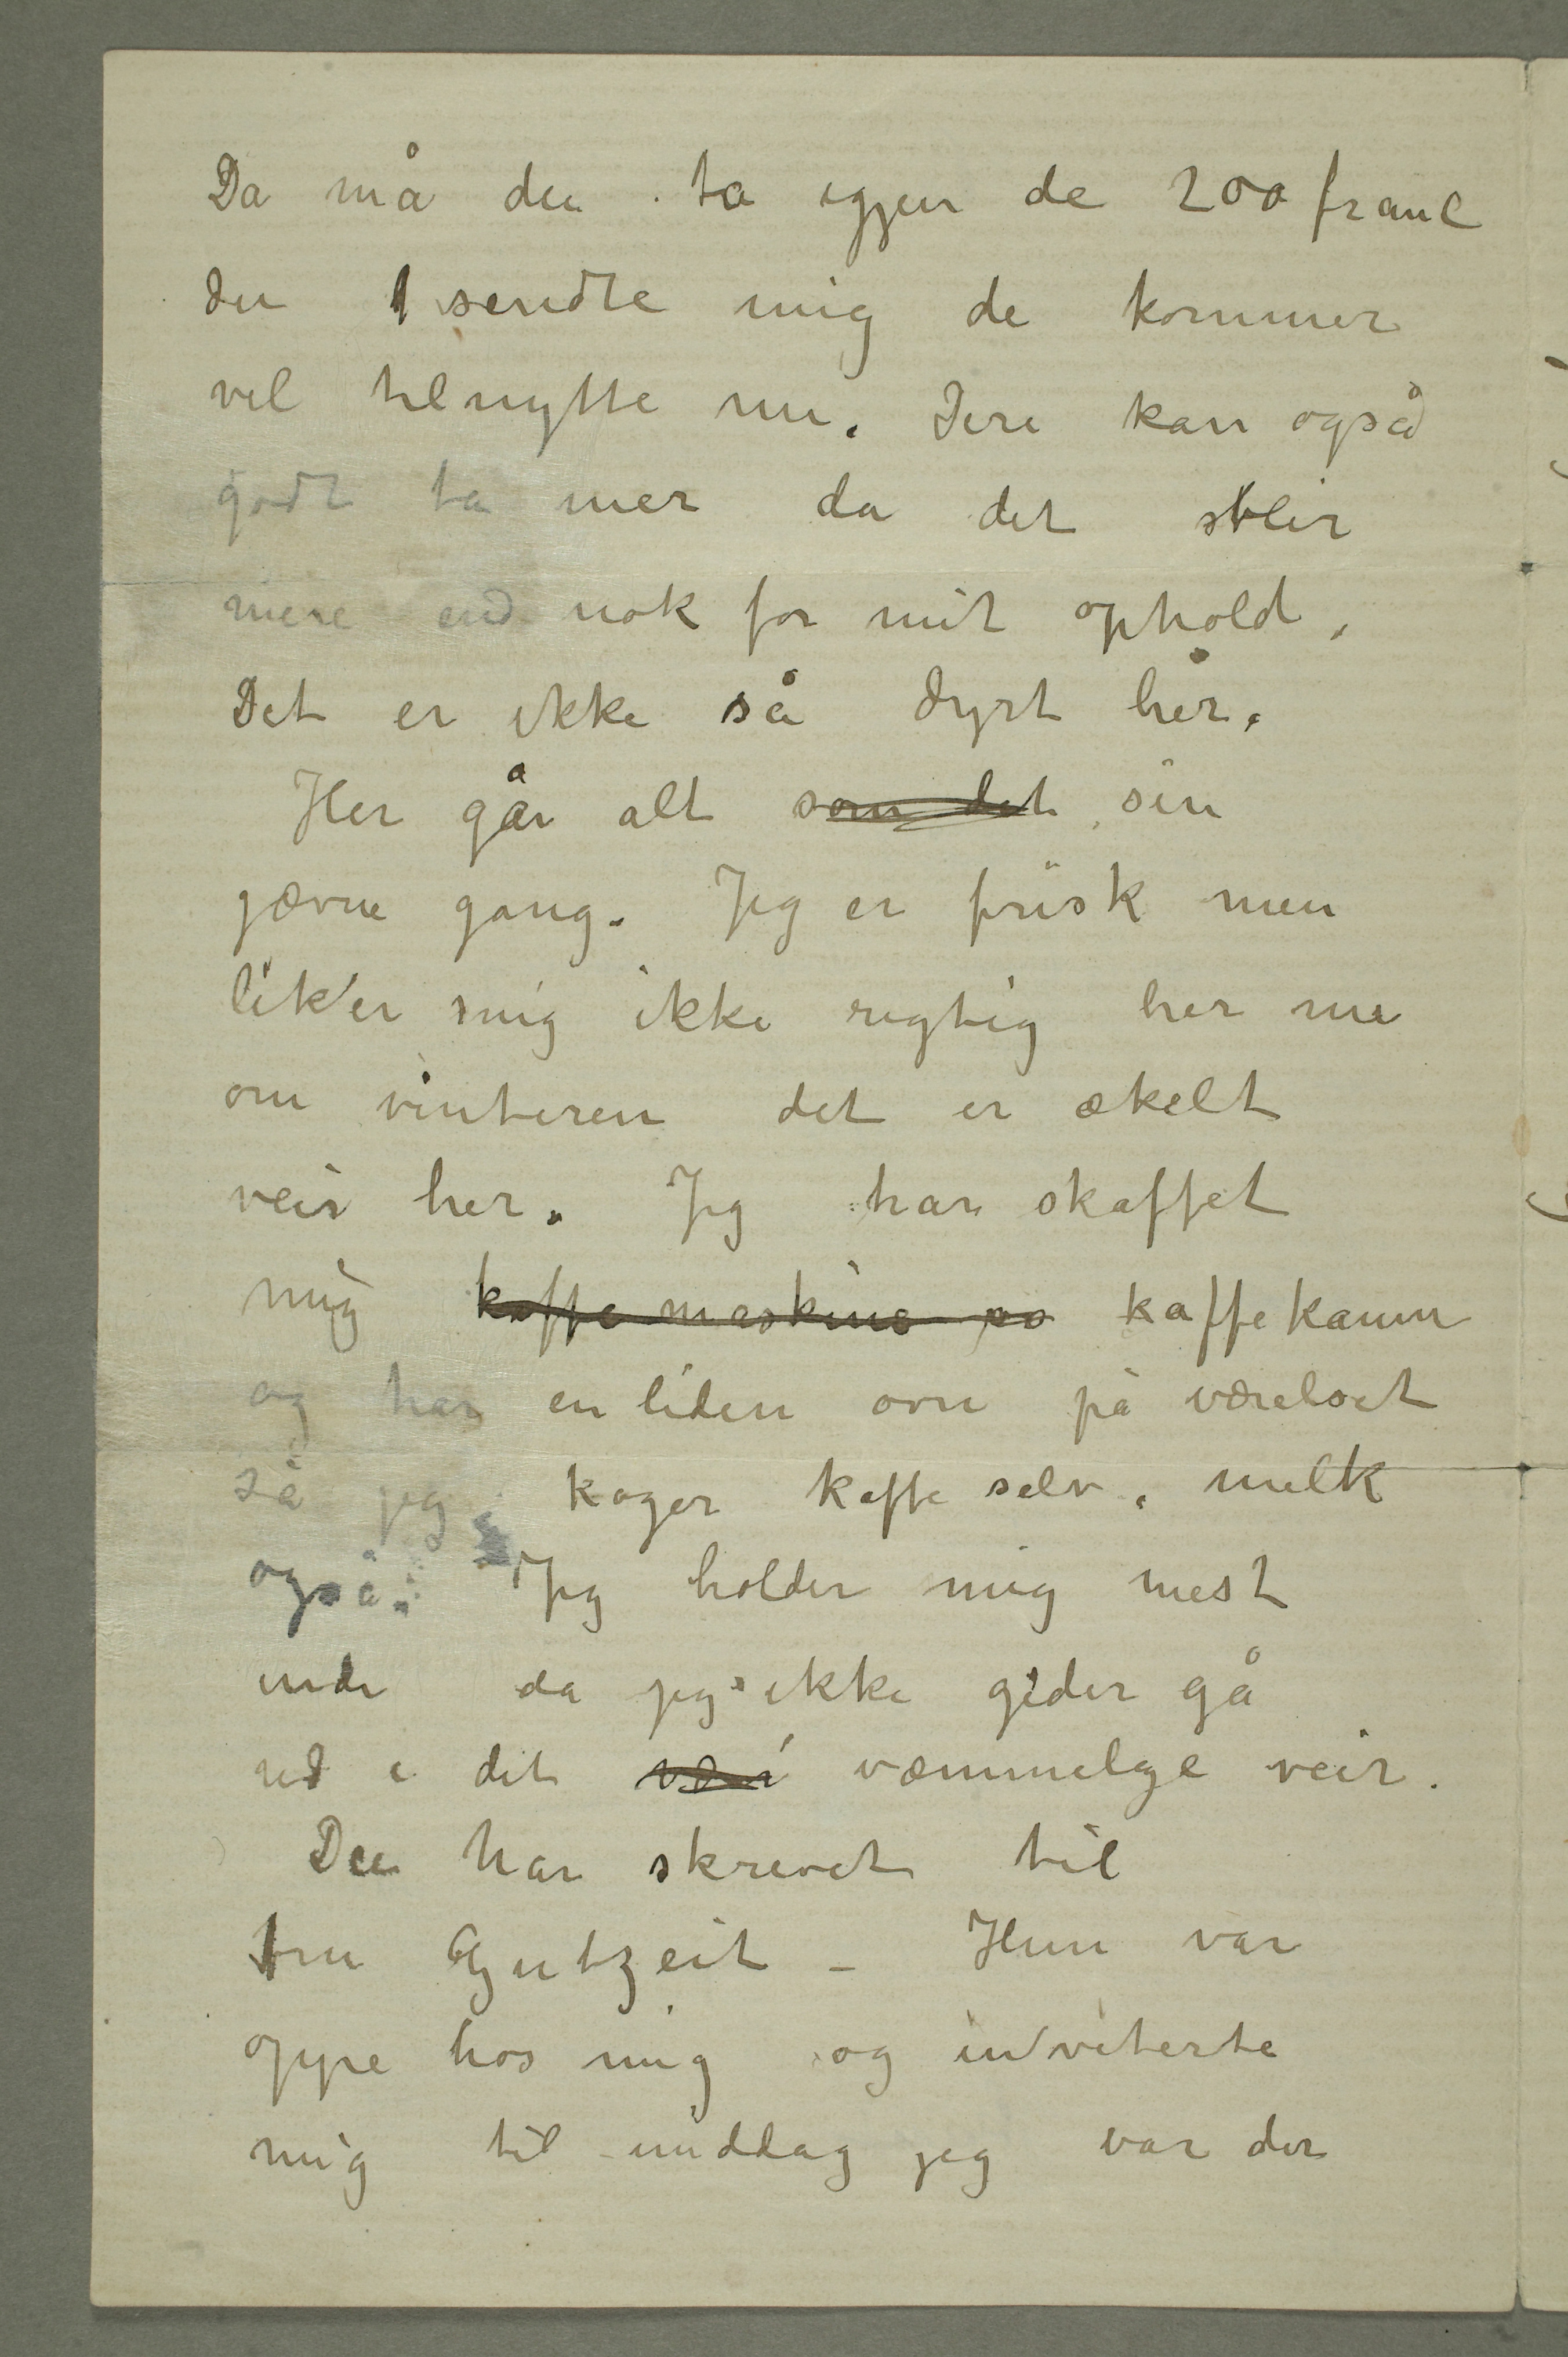 Da må du ta igjen de 200 franc
du sendte mig de kommer
vel tilnytte nu. Dere kan også
godt ta mer da det blir
mere end nok for mit ophold.
Det er ikke så dyrt her.
Her går alt som det sin
jævne gang. Jeg er frisk men
liker mig ikke rigtig her nu
om vinteren det er ækelt
veir her. Jeg har skaffet
mig kaffemaskine og kaffekanne
og har en liden ovn på værelset
så jeg koger kaffe selv. melk
også. Jeg holder mig mest
inde da jeg ikke gider gå
ud i det væmmelge veir.
Du har skrevet til
fru Gutzeit – Hun var
oppe hos mig og inviterte
mig til middag jeg var der